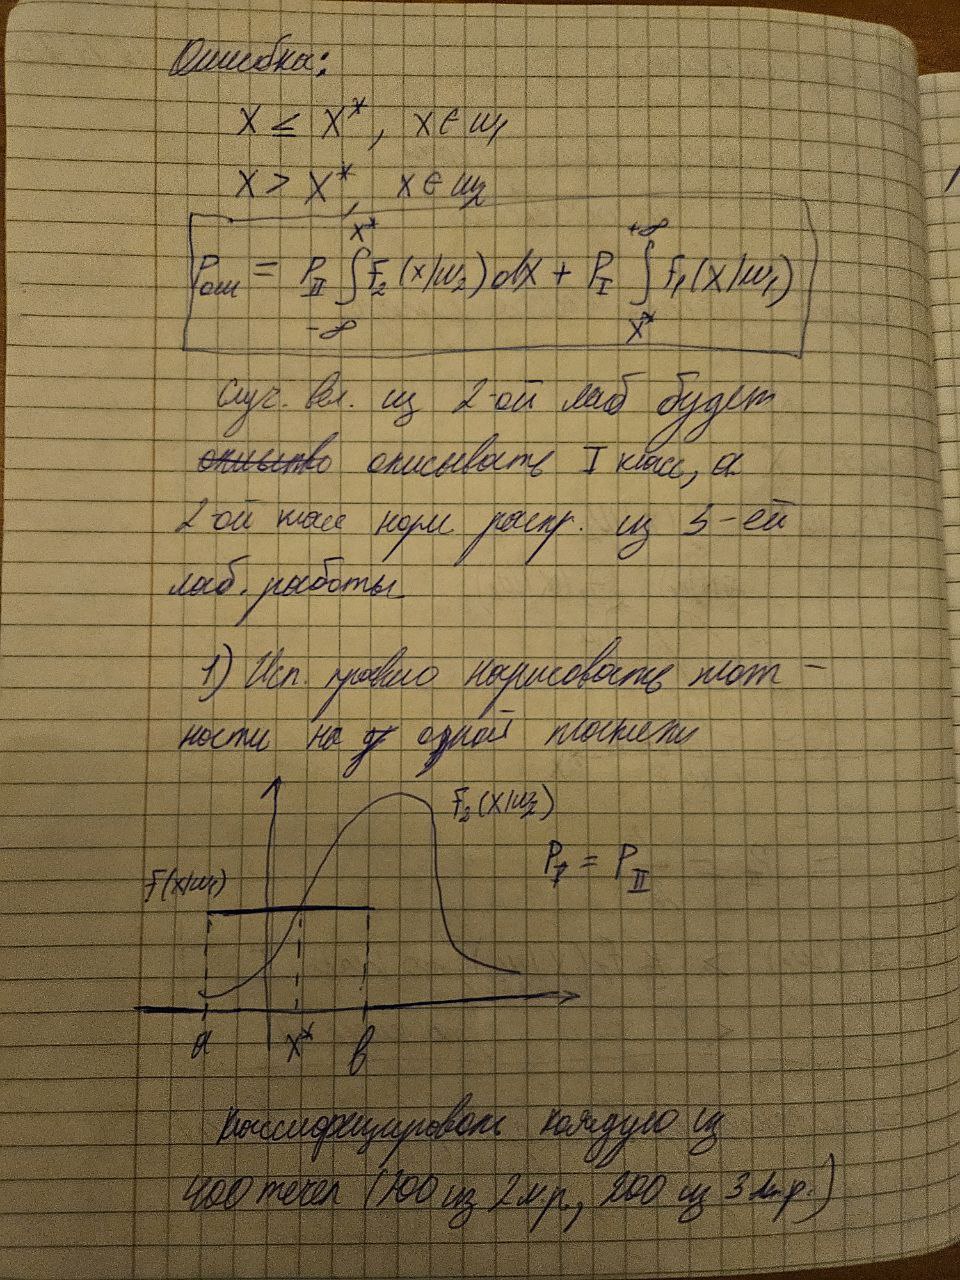 Ошибка:
X ≤ X*, x ∈ ω₁
X > X*, x ∈ ω₂
Pош = P_II ∫_{-∞}^{x*} F₂(x/ω₂)dx + P_I ∫_{x*}^{+∞} f₁(x/ω₁)
Случ. вл. из 2-ой лаб будет
описывать I класс, а
2-ой класс норм распр. из 3-ей
лаб. работы
1) Исп. правило нарисовать плот-
ности на одной плоскости
F₂(x/ω₂)
P_I = P_II
F(x/ω₁)
a x* b
Классифицировать каждую из
400 точек (200 из 2 л.р., 200 из 3 л.р.)